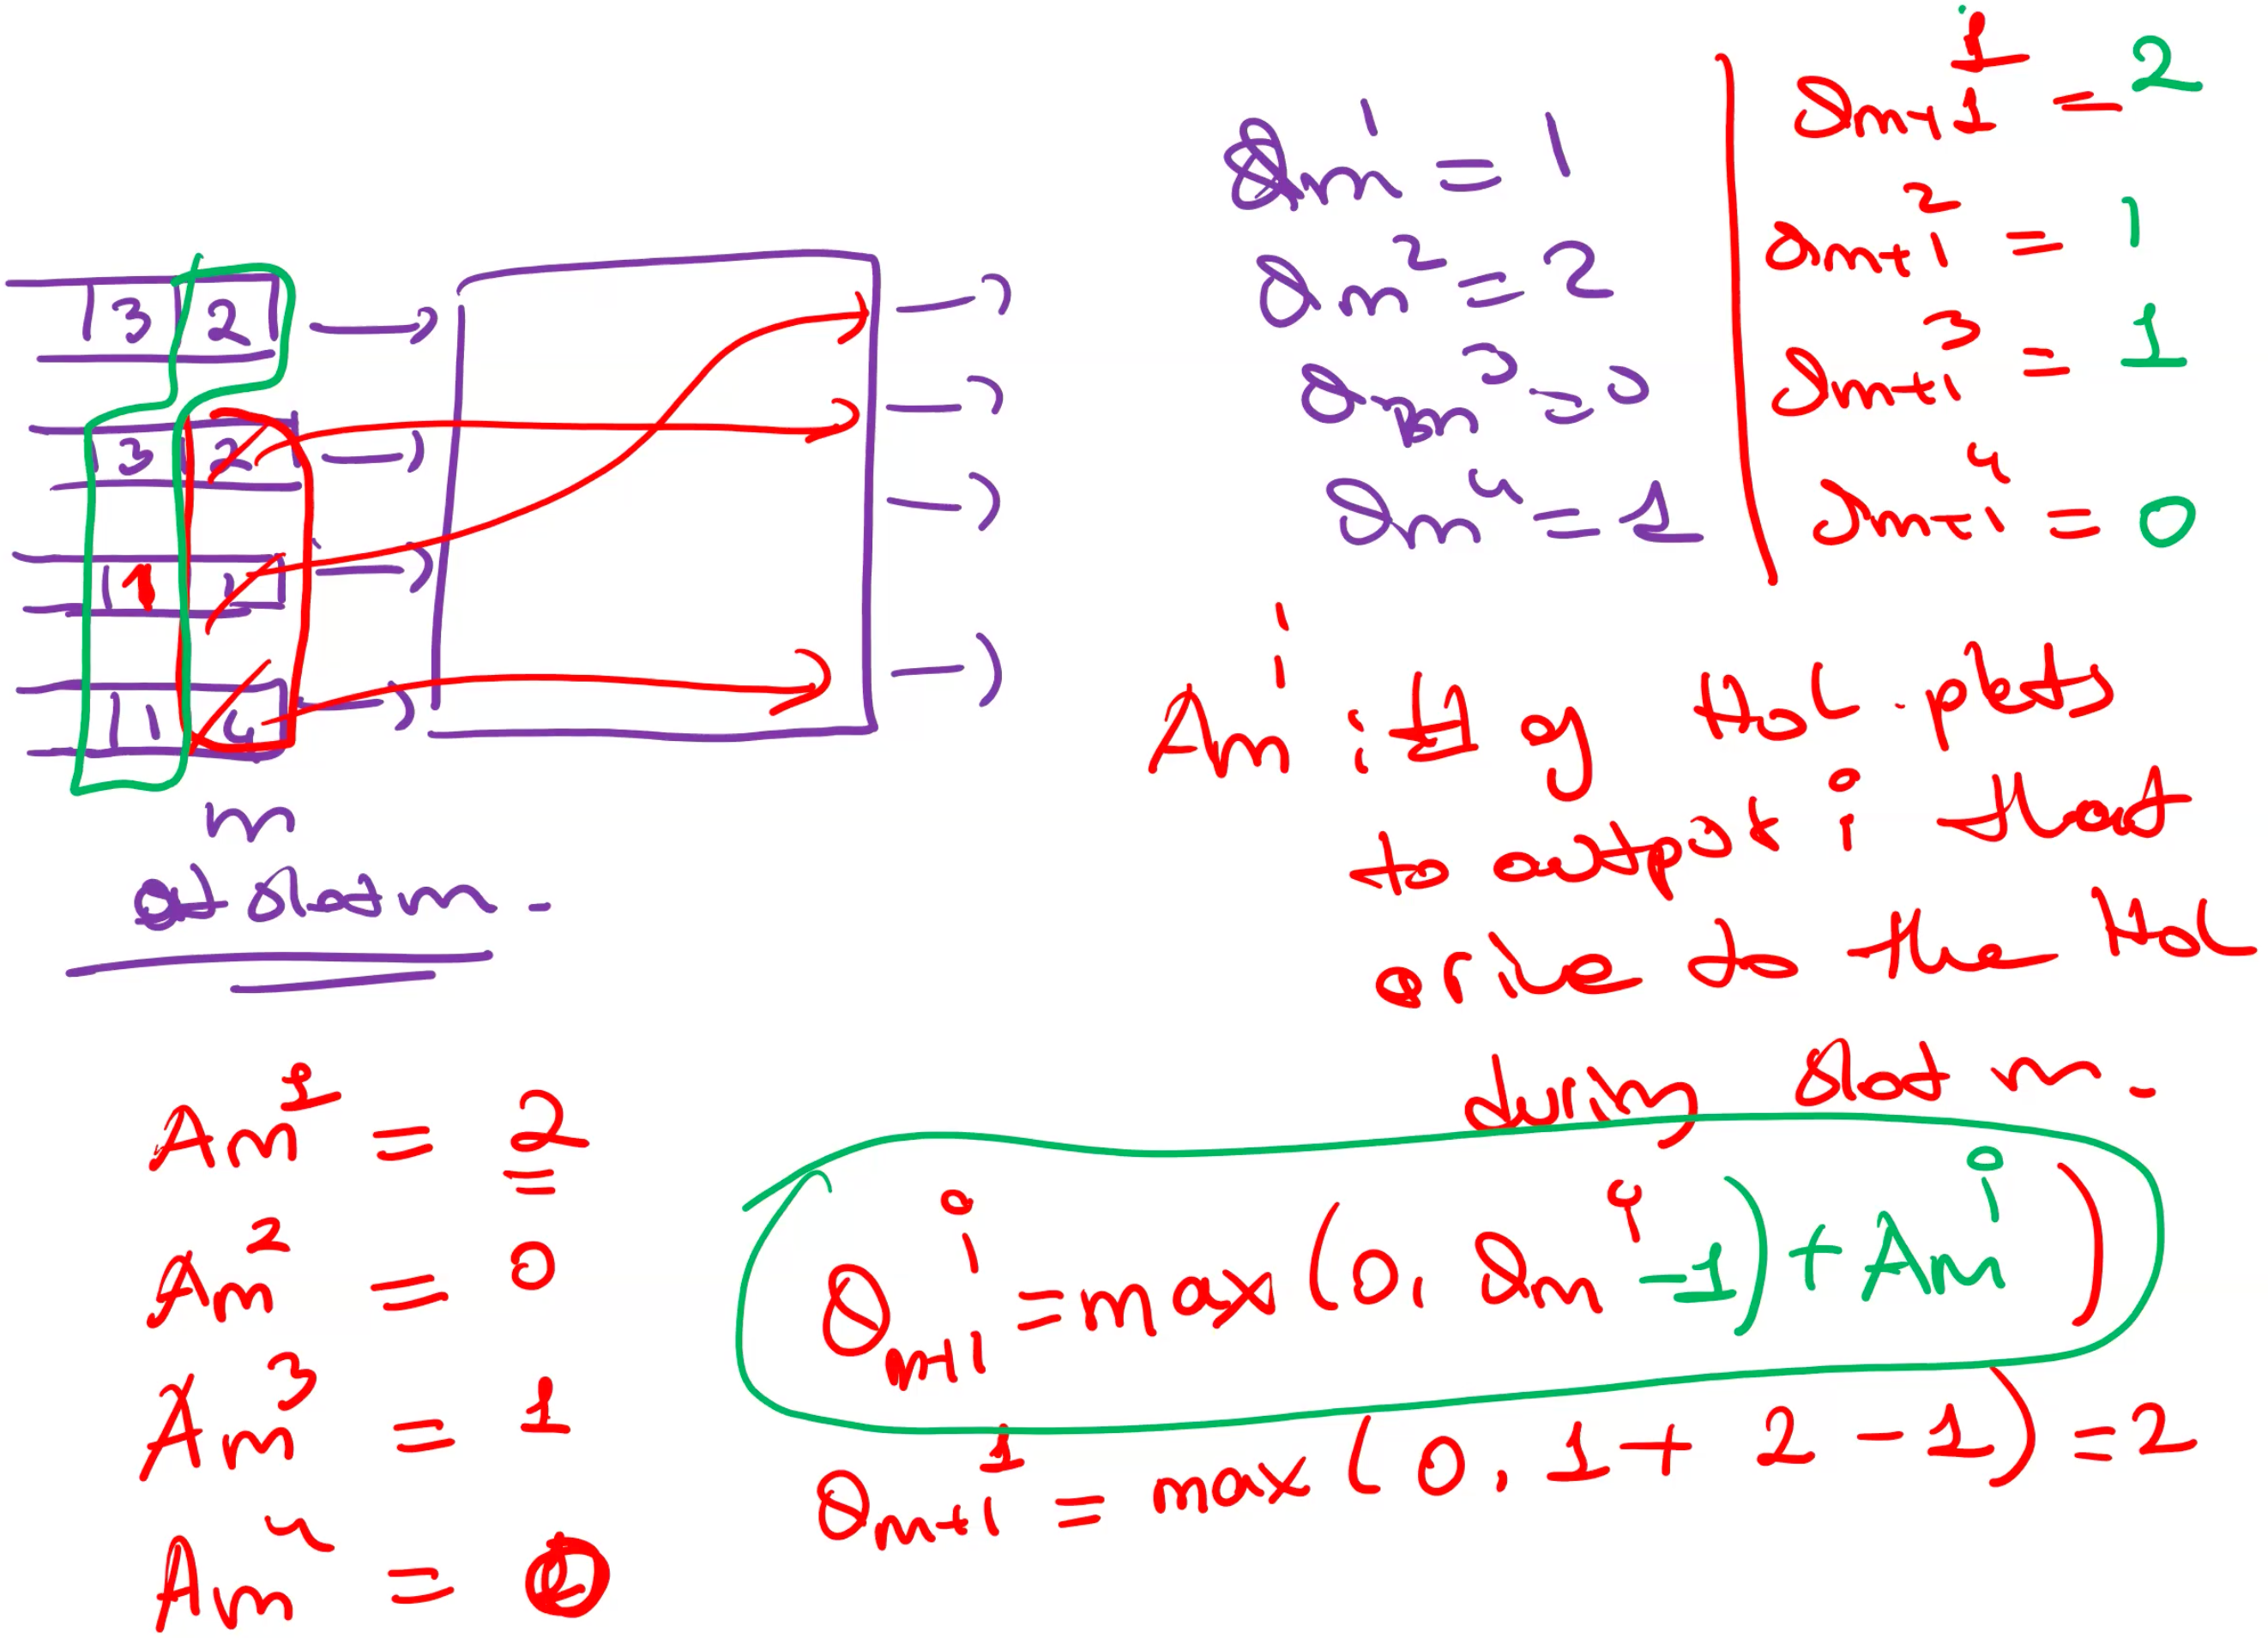 3 2
3 2
1 2
1 4
m
at slot m -
Qm^1 = 1
Qm^2 = 2
Qm^3 = 0
Qm^4 = 1
Qm+1^1 = 2
Qm+1^2 = 1
Qm+1^3 = 1
Qm+1^4 = 0
Am^i : # of HoL pkts
to output i that
arive to the HoL
during slot m.
Am^1 = 2
Am^2 = 0
Am^3 = 1
Am^4 = 0
Qm+1^i = max(0, Qm^i -1) + Am^i)
Qm+1^1 = max(0, 1+2-1) = 2